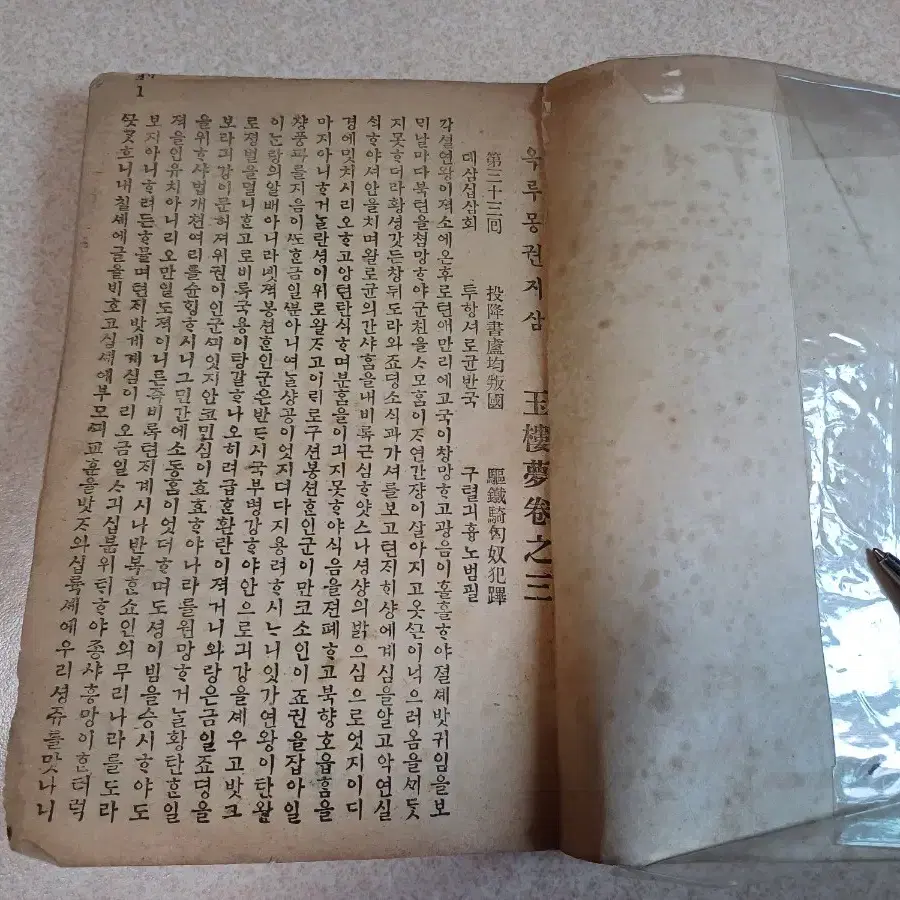 옥루몽권지삼 玉樓夢卷之三
第三十三回 投降書盧均叛國 驅鐵騎匈奴犯蹕
뎨삼십삼회 투항셔로균반국 구텰긔흉노범필
각셜연왕이젹소에온후로텬애만리에고국이창망ᄒᆞ고광음이홀홀ᄒᆞ야졀셰밧귀임을보
ᄆᆡ날마다북텬을쳠망ᄒᆞ야군친을ᄉᆞ모홈이ᄌᆞ연간쟝이살아지고옷ᄯᅴ이넉으러옴을ᄭᅢᄃᆞᆺ
지못ᄒᆞ더라황셩갓든창뒤도라와죠뎡소식과가셔를보고텬ᄌᆞㅣ히샹에계심을알고악연실
ᄉᆡᆨᄒᆞ야셔안을치며왈로균의간샤홈을내비록근심ᄒᆞ얏스나셩샹의밝으심으로엇지이디
경에밋치시리오ᄒᆞ고앙텬탄식ᄒᆞ며분홈을이긔지못ᄒᆞ야식음을젼폐ᄒᆞ고북향호읍홈을
마지아니ᄒᆞ거ᄂᆞᆯ란셩이위로왈ᄌᆞ고이ᄅᆡ로구션봉션ᄒᆞᆫ인군이만코소인이죠권을잡아일
챵풍파를지음이ᄯᅩᄒᆞᆫ금일ᄲᅮᆫ아니여ᄂᆞᆯ샹공이엇지더다지용려ᄒᆞ시ᄂᆞ니잇가연왕이탄왈
이ᄂᆞᆫ랑의알배아니라녯젹봉션ᄒᆞᆫ인군은반ᄃᆞ시국부병강ᄒᆞ야안으로긔강을셰우고밧그
로졍벌을멀니ᄒᆞᆫ고로비록국용이탕갈ᄒᆞ나오히려급ᄒᆞᆫ환란이젹거니와랑은금일죠뎡을
보라긔강이문허져위권이인군ᄭᅴ잇지안코민심이효효ᄒᆞ야나라를원망ᄒᆞ거ᄂᆞᆯ황탄ᄒᆞᆫ일
을위ᄒᆞ샤법개쳔여리를슌ᄒᆡᆼᄒᆞ시니그민간에소동홈이엇더ᄒᆞ며도셩이빔을승시ᄒᆞ야도
젹을인유치아니리오만일도젹이니른즉비록텬ᄌᆞㅣ계시나반복ᄒᆞᆫ쇼인의무리나라를도라
보지아니ᄒᆞ려든ᄒᆞ믈며텬ᄌᆞㅣ밧게계심이리오금일ᄉᆞ긔십분위ᄐᆡᄒᆞ야죵샤흥망이ᄒᆞᆫ터럭
ᄀᆞᆺᄒᆞ니내칠셰에글을ᄇᆡ호고십셰에부모ᄭᅴ교훈을밧ᄌᆞ와십륙셰에우리셩쥬를맛나니
1